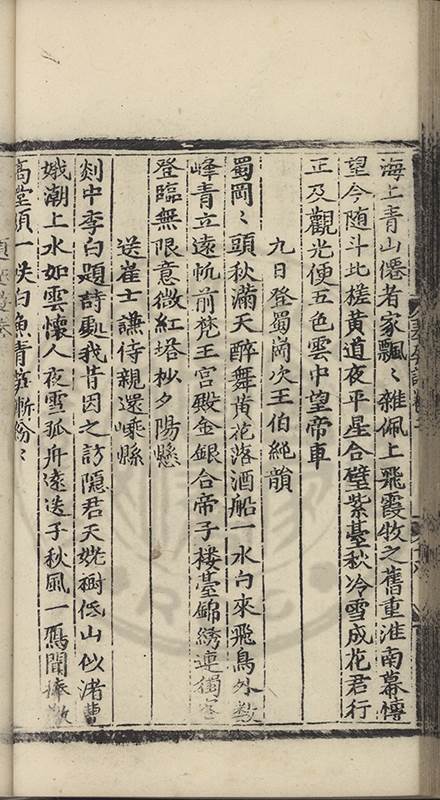 海上青山僊者家飄〻雜佩上飛霞牧之舊重淮南幕博
望今随斗北槎黄道夜平星合璧紫臺秋冷雪成花君行
正及觀光便五色雲中望帝車
九日登蜀岡次王伯純韻
蜀岡〻頭秋滿天醉舞黄花落酒船一水白來飛鳥外數
峰青立遠帆前梵王宫殿金銀合帝子楼臺錦綉連獨
登臨無限意微紅塔杪夕陽懸
送崔士謙侍親還嵊縣
剡中李白題詩處我昔因之訪隱君天姥樹低山似渚曹
娥潮上水如雲懷人夜雪孤舟遠送子秋風一鴈聞
高堂頭一白魚青笋